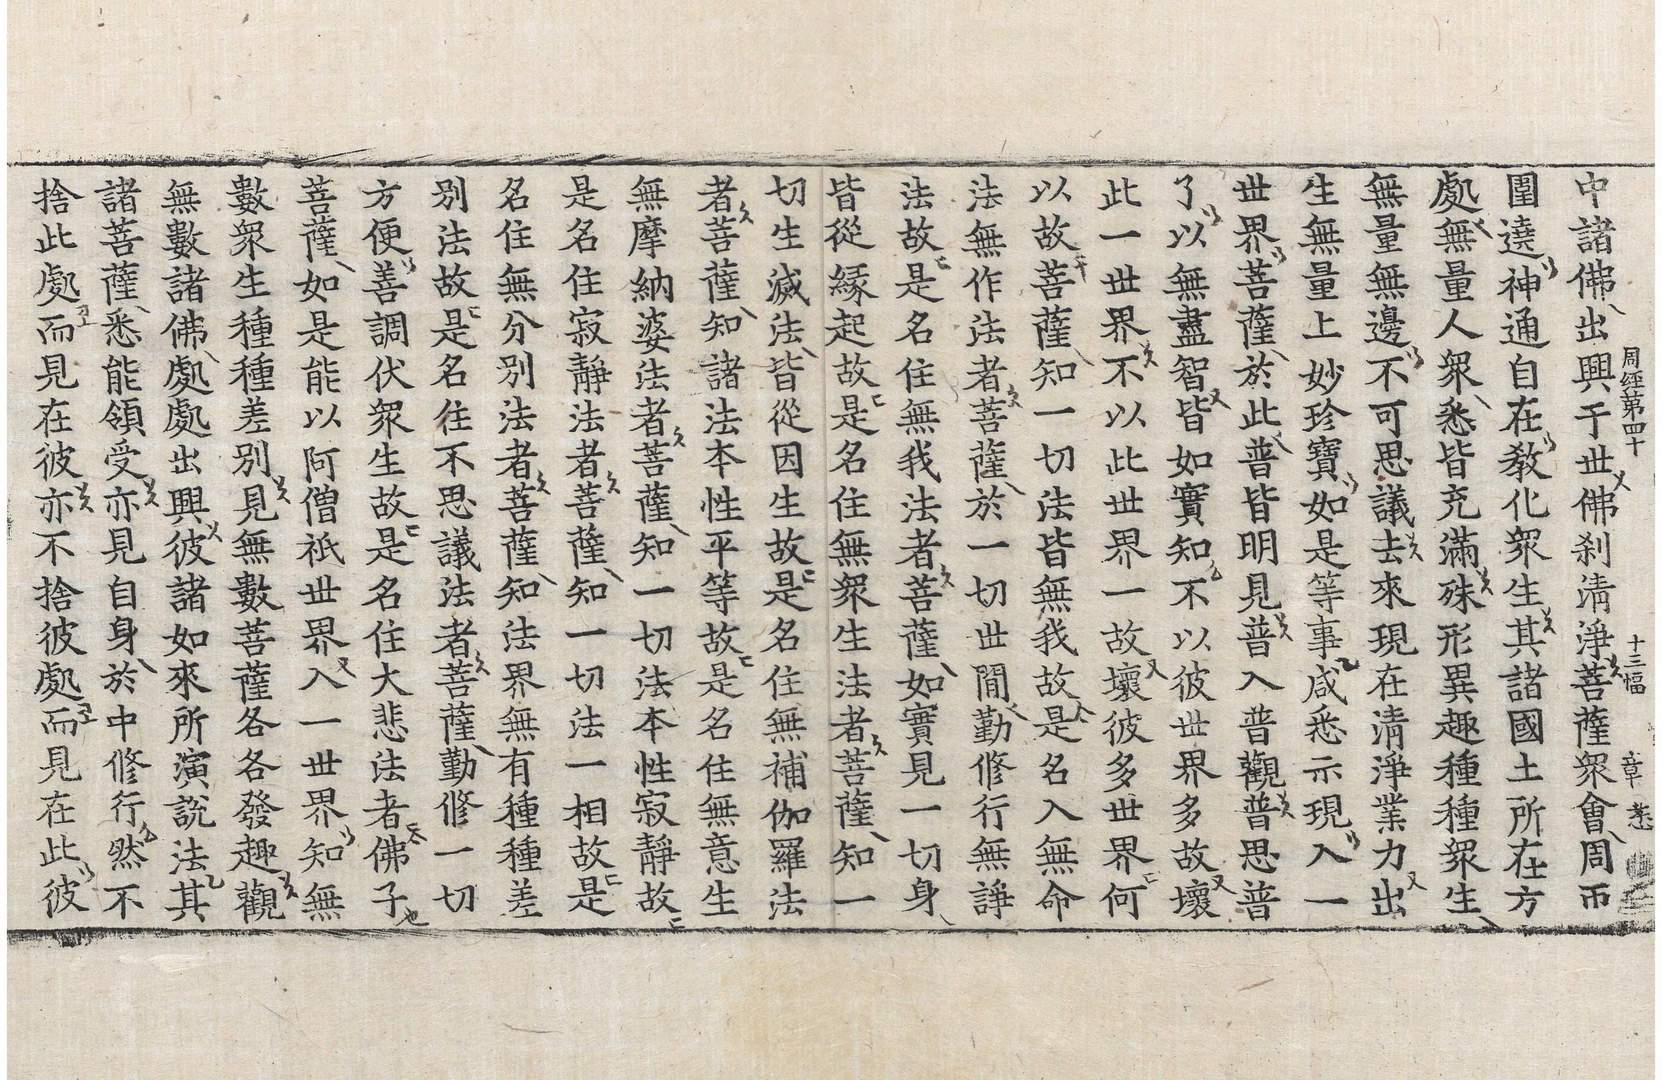 周經第四十 十三幅 章
中諸佛出興于世佛刹清淨菩薩衆會周帀
圍遶神通自在敎化衆生其諸國土所在方
處無量人衆悉皆充滿殊形異趣種種衆生
無量無邊不可思議去來現在清淨業力出
生無量上妙珍寶如是等事咸悉示現入一
世界菩薩於此普皆明見普入普觀普思普
了以無盡智皆如實知不以彼世界多故壞
此一世界不以此世界一故壞彼多世界何
以故菩薩知一切法皆無我故是名入無命
法無作法者菩薩於一切世間勤修行無諍
法故是名住無我法者菩薩如實見一切身
皆從緣起故是名住無衆生法者菩薩知一
切生滅法皆從因生故是名住無補伽羅法
者菩薩知諸法本性平等故是名住無意生
無摩納婆法者菩薩知一切法本性寂靜故
是名住寂靜法者菩薩知一切法一相故是
名住無分別法者菩薩知法界無有種種差
別法故是名住不思議法者菩薩勤修一切
方便善調伏衆生故是名住大悲法者佛子
菩薩如是能以阿僧祇世界入一世界知無
數衆生種種差別見無數菩薩各各發趣觀
無數諸佛處處出興彼諸如來所演說法其
諸菩薩悉能領受亦見自身於中修行然不
捨此處而見在彼亦不捨彼處而見在此彼